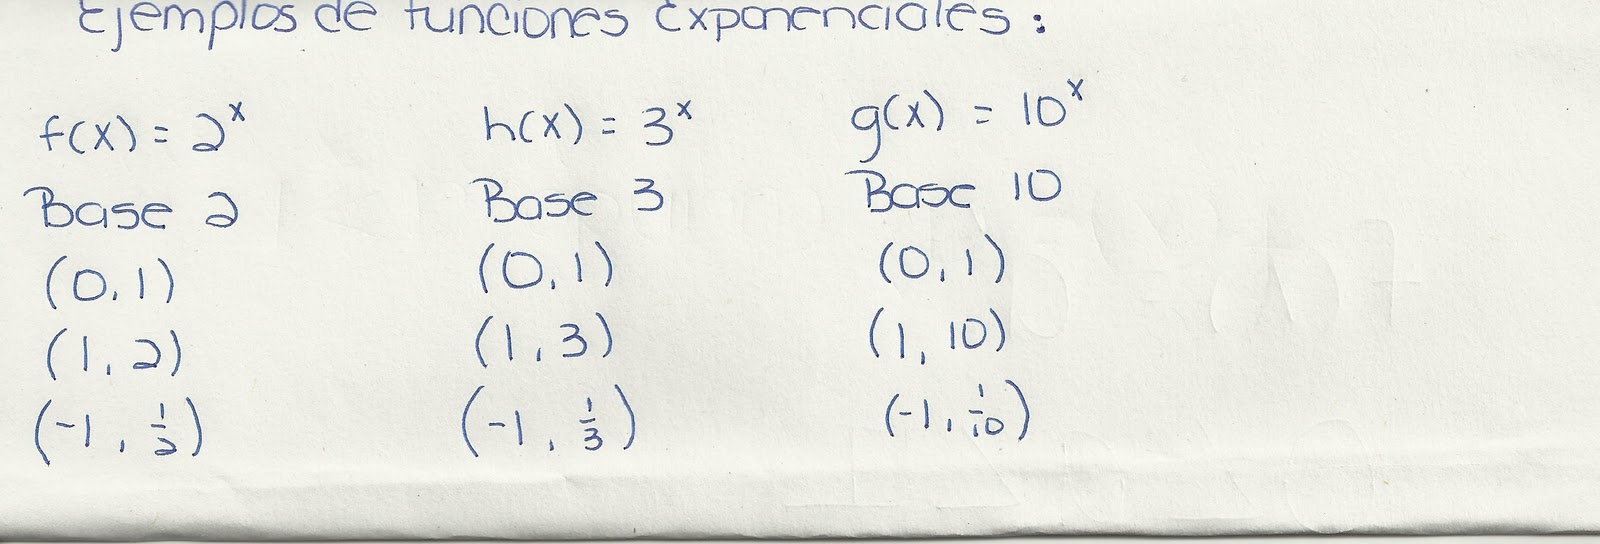 Ejemplos de funciones exponenciales:
f(x) = 2^x
Base 2
(0, 1)
(1, 2)
(-1, 1/2)
h(x) = 3^x
Base 3
(0, 1)
(1, 3)
(-1, 1/3)
g(x) = 10^x
Base 10
(0, 1)
(1, 10)
(-1, 1/10)